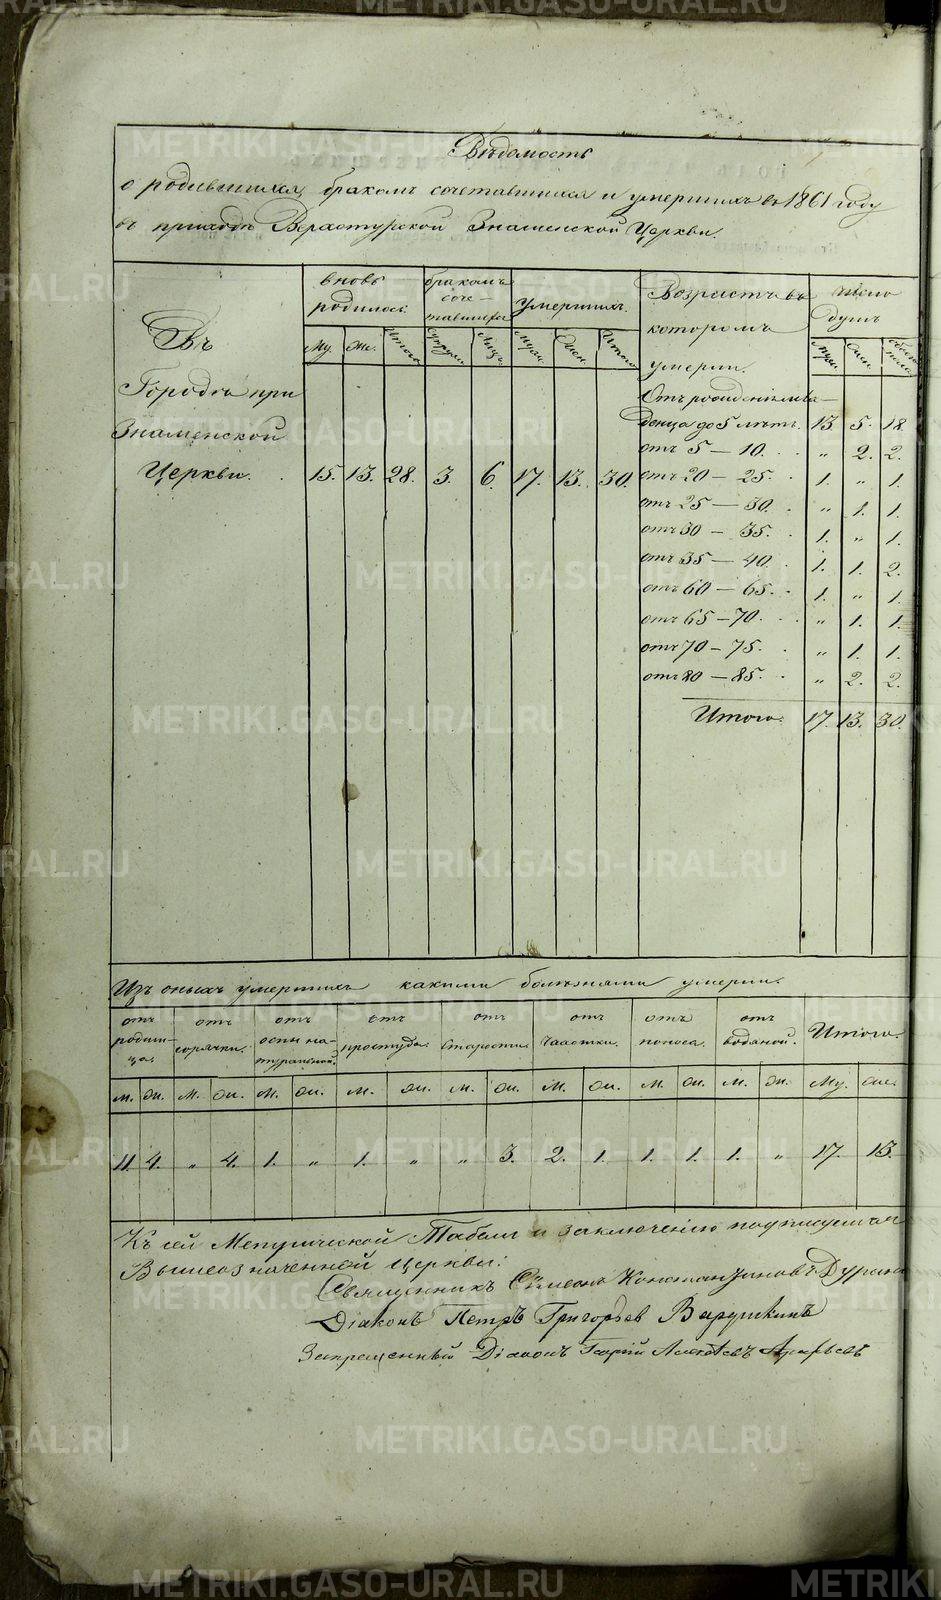 Вѣдомость
о родившихся, бракомъ сочетавшихся и умершихъ въ 1861 году
въ приходѣ Верхотурской Знаменской Церкви
Въ
Городѣ при
Знаменской
Церкви.
вновь
родилось
Му. Же. Итого
бракомъ
соче-
тавшихся
Супруж. Лицъ
Умершихъ.
Муж. Жен. Итого
15. 13. 28. 3. 6. 17. 13. 30.
Возрастъ въ
которомъ
умерли.
число
душъ
Муж. Жен. обоего пола
Отъ рожденія мла-
денца до 5 лѣтъ. 13. 5. 18.
отъ 5 — 10. „ 2. 2.
отъ 20 — 25. 1. „ 1.
отъ 25 — 30. „ 1. 1.
отъ 30 — 35. 1. „ 1.
отъ 35 — 40. 1. 1. 2.
отъ 60 — 65. 1. „ 1.
отъ 65 — 70. „ 1. 1.
отъ 70 — 75. „ 1. 1.
отъ 80 — 85. „ 2. 2.
Итого. 17. 13. 30.
Изъ оныхъ умершихъ какими болѣзнями умерли.
отъ родим-
ца.
отъ
горячки.
отъ
оспы на-
туральной.
отъ
простуды.
отъ
Старости.
отъ
Чахотки.
отъ
поноса.
отъ
водяной.
Итого.
М. Ж. М. Ж. М. Ж. М. Ж. М. Ж. М. Ж. М. Ж. М. Ж. Му. Же.
11. 4. „ 4. 1. „ 1. „ „ 3. 2. 1. 1. 1. 1. „ 17. 13.
Къ сей Метрической Табели и заключенію подписуемся
Вышеозначенной Церкви:
Священникъ Сѵмеонъ Константиновъ
Діаконъ Петръ Григорьев
Запрещенный Діаконъ Георгій
METRIKI.GASO-URAL.RU